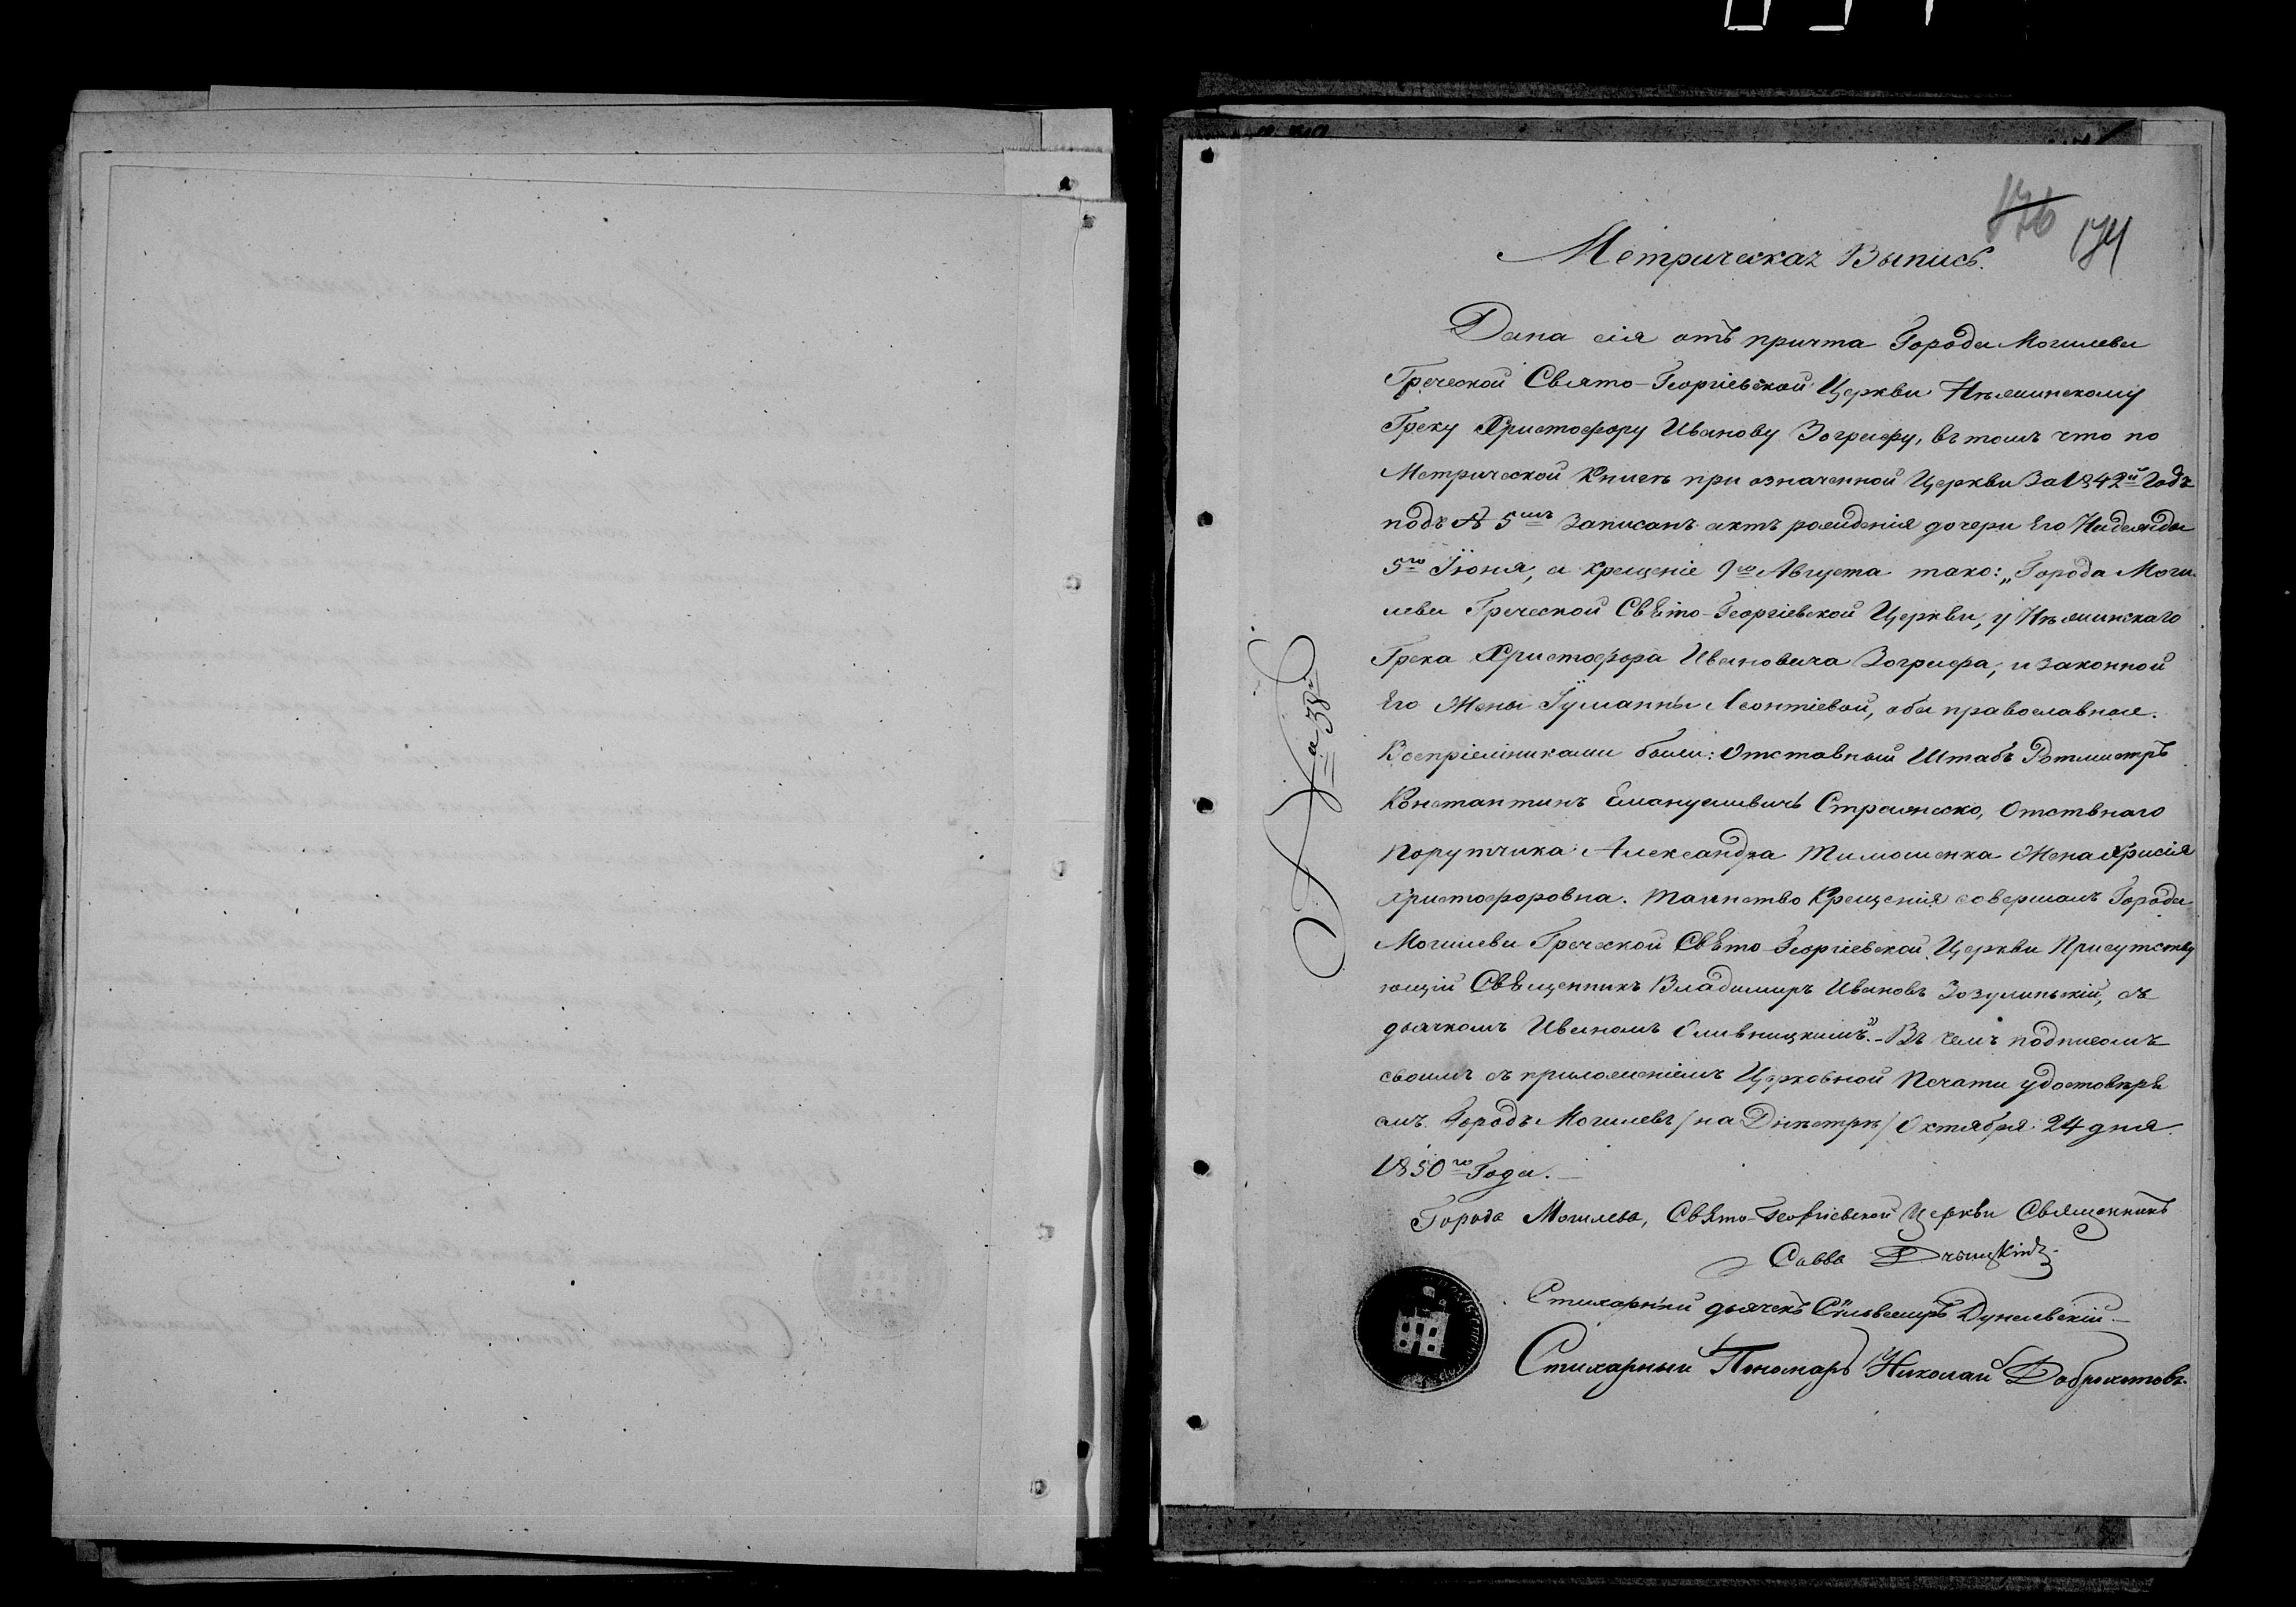 174
Метрическая Выпись.
Дана сія отъ причта Города Могилева
Греческой Свято-Георгіевской Церкви Нѣжинскому
Греку Христофору Иванову Зографу, въ томъ что по
Метрической Книгѣ при означенной Церкви За 1842й Годъ
подъ № 5мъ Записанъ актъ рожденія дочери Его Надежды
5го Іюня, а крещеніе 9го Августа тако: „Города Моги-
лева Греческой Свѣто-Георгіевской Церкви, у Нѣжинскаго
Грека Христофора Ивановича Зографа, и законной
Его Жены Іулианны Леонтіевой, оба православные.
Воспріемниками были: Отставный Штабъ Ротмистръ
Константинъ Емануиловичъ Стражеско, Отствнаго
Порутчика Александра Тимошенка Жена Хрисія
Христофоровна. Таинство Крещенія совершалъ Города
Могилева Греческой Свѣто-Георгіевской Церкви Присутству
ющій Свѣщенникъ Владимиръ Ивановъ Зозулинскій, съ
дьячкомъ Иваномъ Сливницкимъ". - Въ чемъ подписомъ
своимъ съ приложеніемъ Церковной Печати удостовѣрѣ
емъ. Городъ Могилевъ /на Днѣстрѣ/ Октября 24 дня
1850го Года. —
Города Могилева, Свято-Георгіевской Церкви Священникъ
Савва
Стихарный дьячекъ Сильвестръ Дунаевскій
Стихарный Пономарь Николай Доброхотовъ.
№ 38й